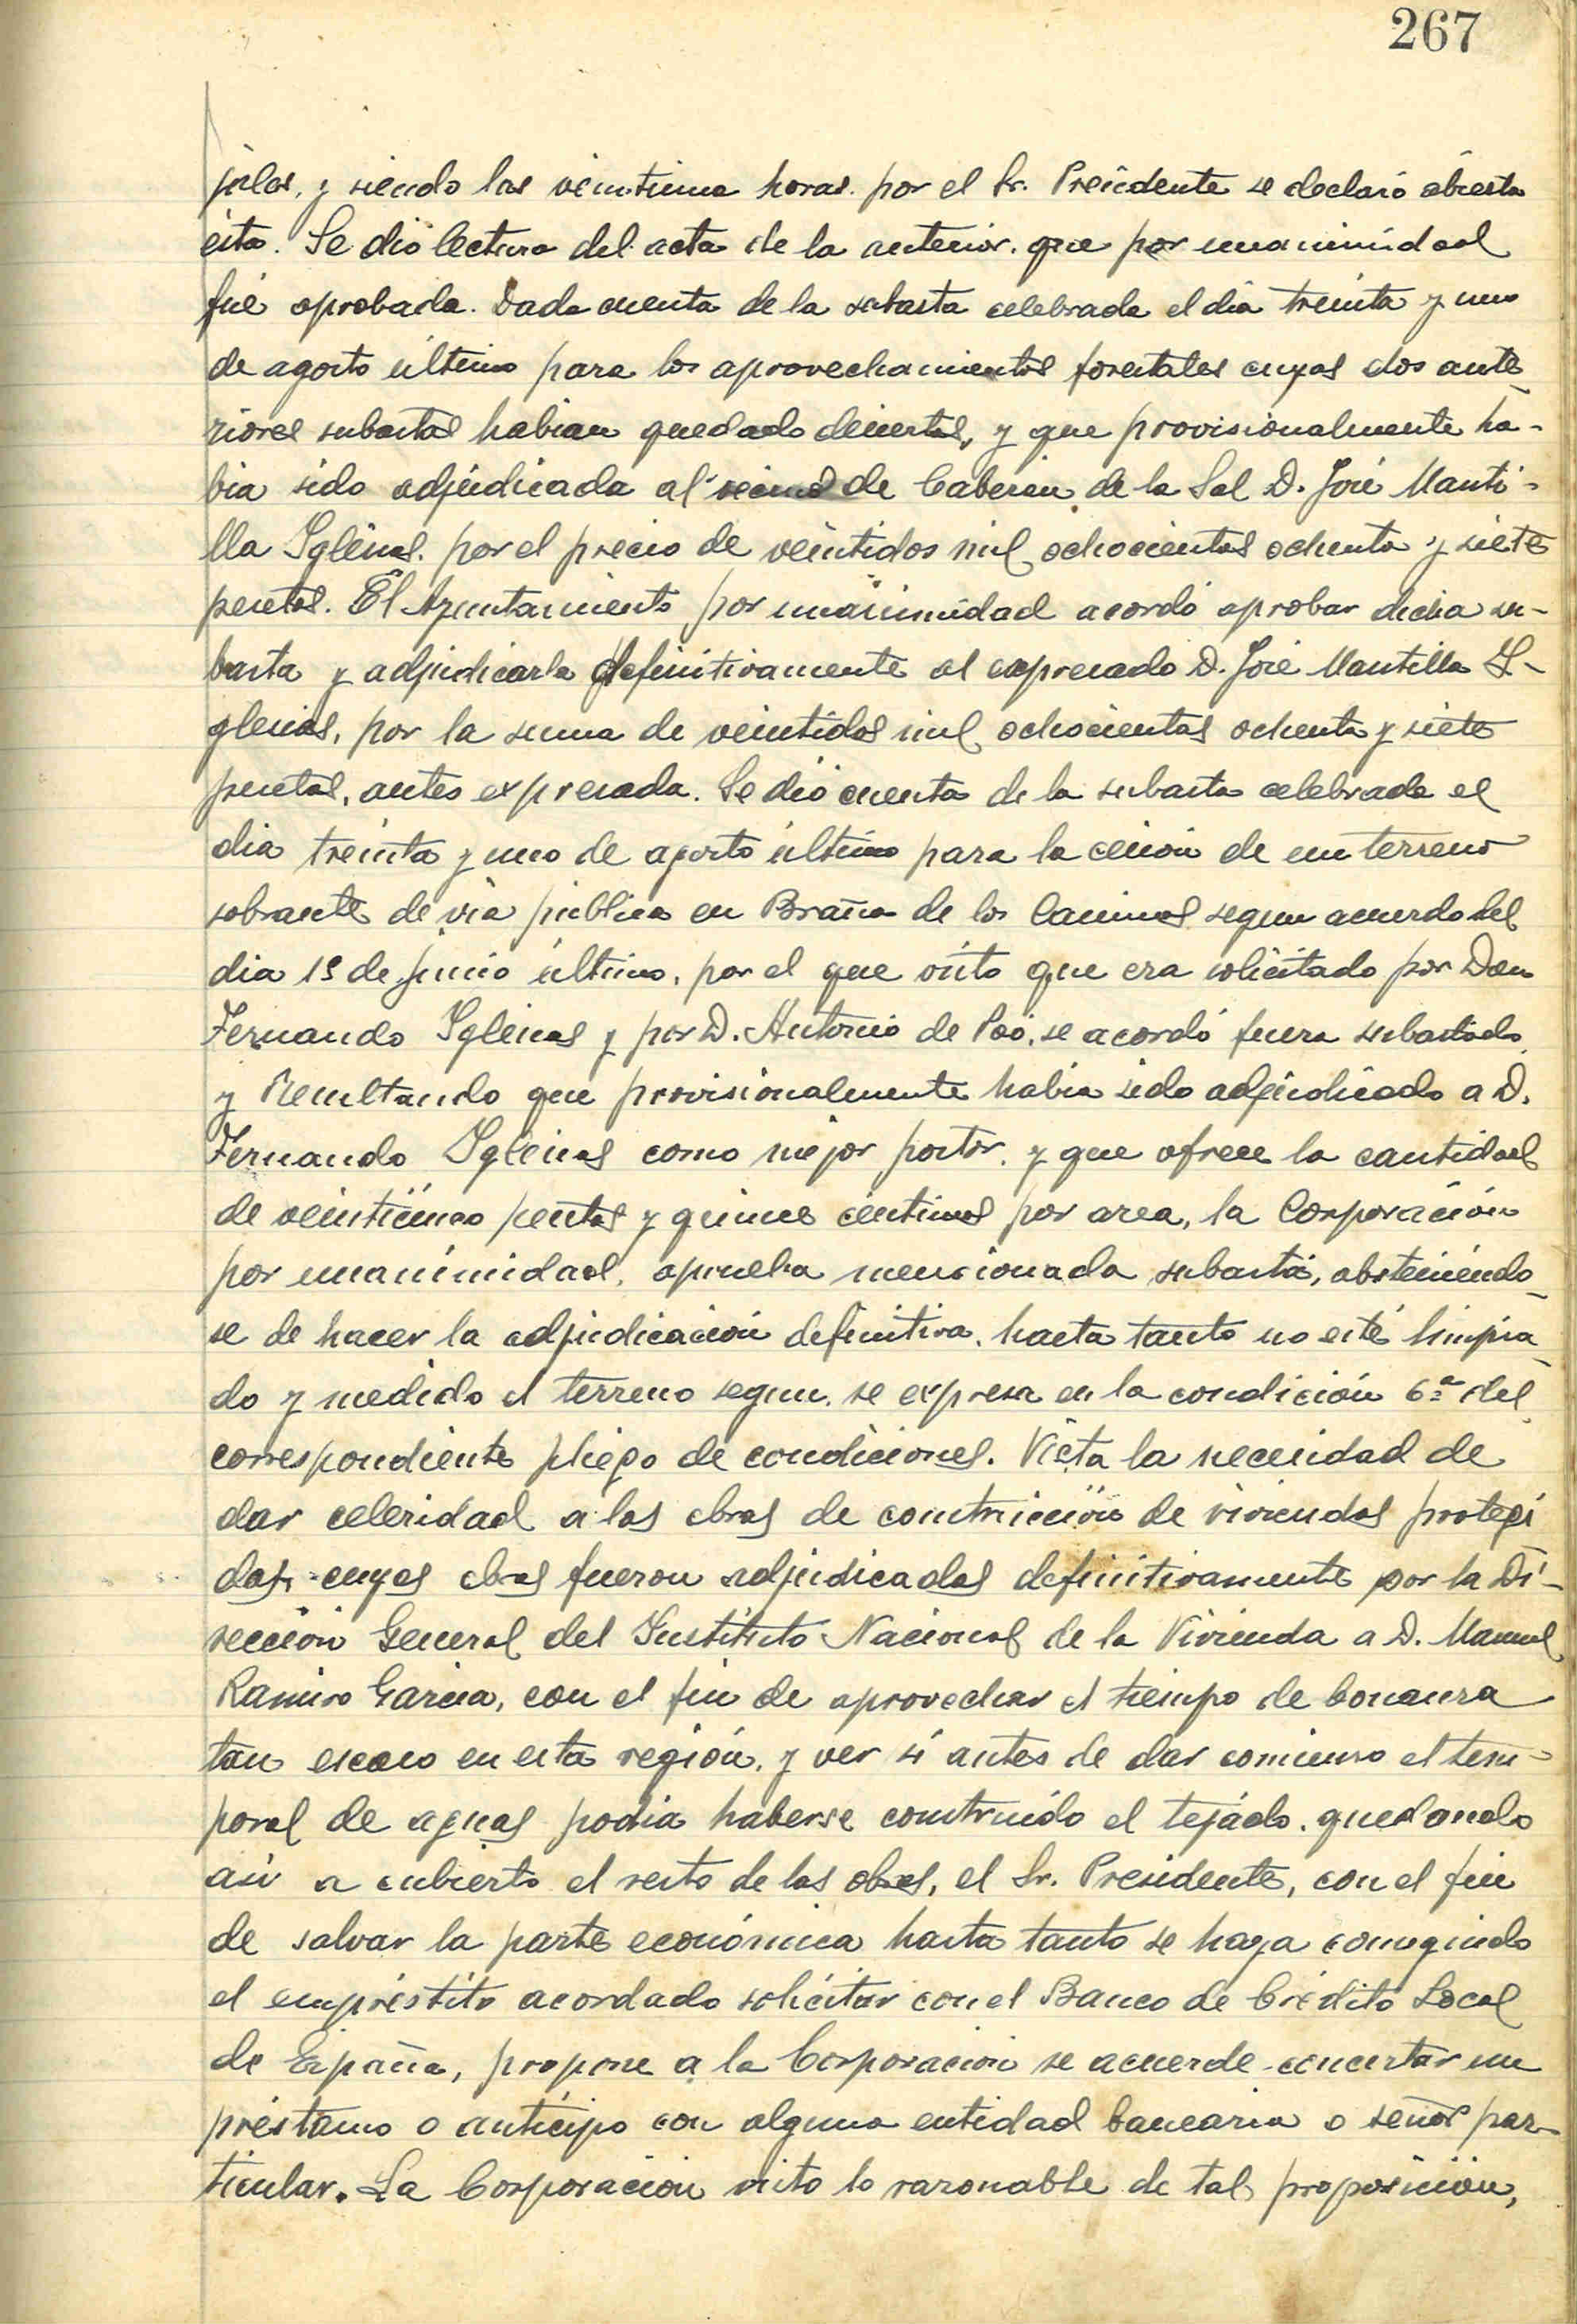 267
jales, y siendo las veintiuna horas. por el Sr. Presidente se declaró abierta
ésta. Se dió lectura del acta de la anterior. que por unanimidad
fué aprobada. Dada cuenta de la subasta celebrada el dia treinta y uno
de agosto último para los aprovechamientos forestales cuyas dos ante-
riores subastas habian quedado desiertas, y que provisionalmente ha-
bia sido adjudicada al vecino de Cabezón de la Sal D. José Manti-
lla Iglesias. por el precio de veintidos mil ochocientas ochenta y siete
pesetas. El Ayuntamiento por unanimidad acordó aprobar dicha su-
basta y adjudicarla definitivamente al expresado D. José Mantilla I-
glesias, por la suma de veintidos mil ochocientas ochenta y siete
pesetas, antes expresada. Se dió cuenta de la subasta celebrada el
dia treinta y uno de agosto último para la cesión de un terreno
sobrante de via pública en Braña de los Caminos segun acuerdo del
dia 1º de junio último, por el que visto que era solicitado por Don
Fernando Iglesias y por D. Antonio de Poó, se acordó fuera subastado
y Resultando que provisionalmente habia sido adjudicado a D.
Fernando Iglesias como mejor postor. y que ofrece la cantidad
de veinticinco pesetas y quince céntimos por area, la Corporación
por unanimidad, aprueba mencionada subasta, absteniéndo-
se de hacer la adjudicación definitiva, hasta tanto no esté limpia-
do y medido el terreno segun se expresa en la condición 6ª del
correspondiente pliego de condiciones. Vista la necesidad de
dar celeridad a las obras de construcción de viviendas protegi
das, cuyas obras fueron adjudicadas definitivamente por la Di-
rección General del Instituto Nacional de la Vivienda a D. Manuel
Ramiro Garcia, con el fin de aprovechar el tiempo de bonanza
tan escaso en esta región, y ver si antes de dar comienzo el tem-
poral de aguas podia haberse construído el tejado. quedando
asi a cubierto el resto de las obras, el Sr. Presidente, con el fin
de salvar la parte económica hasta tanto se haya conseguido
el empréstito acordado solicitar con el Banco de Crédito Local
de España, propone a la Corporación se acuerde concertar un
préstamo o anticipo con alguna entidad bancaria o señor par-
ticular. La Corporación visto lo razonable de tal proposición,